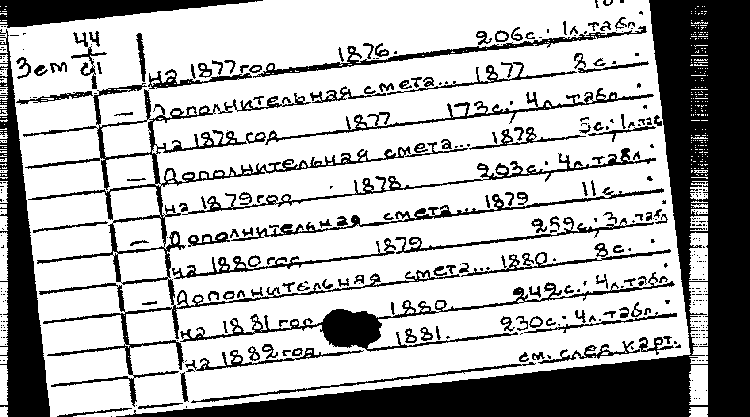 Зем 44
на 1877 год 1876. 206с.; 1л.табл.
— Дополнительная смета... 1877 3 с.
на 1878 год 1877. 173с.; 4л.табл.
— Дополнительная смета... 1878. 5с.; 1л.таб
на 1879 год 1878. 203с.; 4л.табл.
— Дополнительная смета... 1879 11с.
на 1880 год 1879. 259с.; 3л.табл
— Дополнительная смета... 1880. 8с.
на 1881 год 1880. 242с.; 4л.табл.
на 1882 год 1881. 230с.; 4л.табл.
см. след. карт.